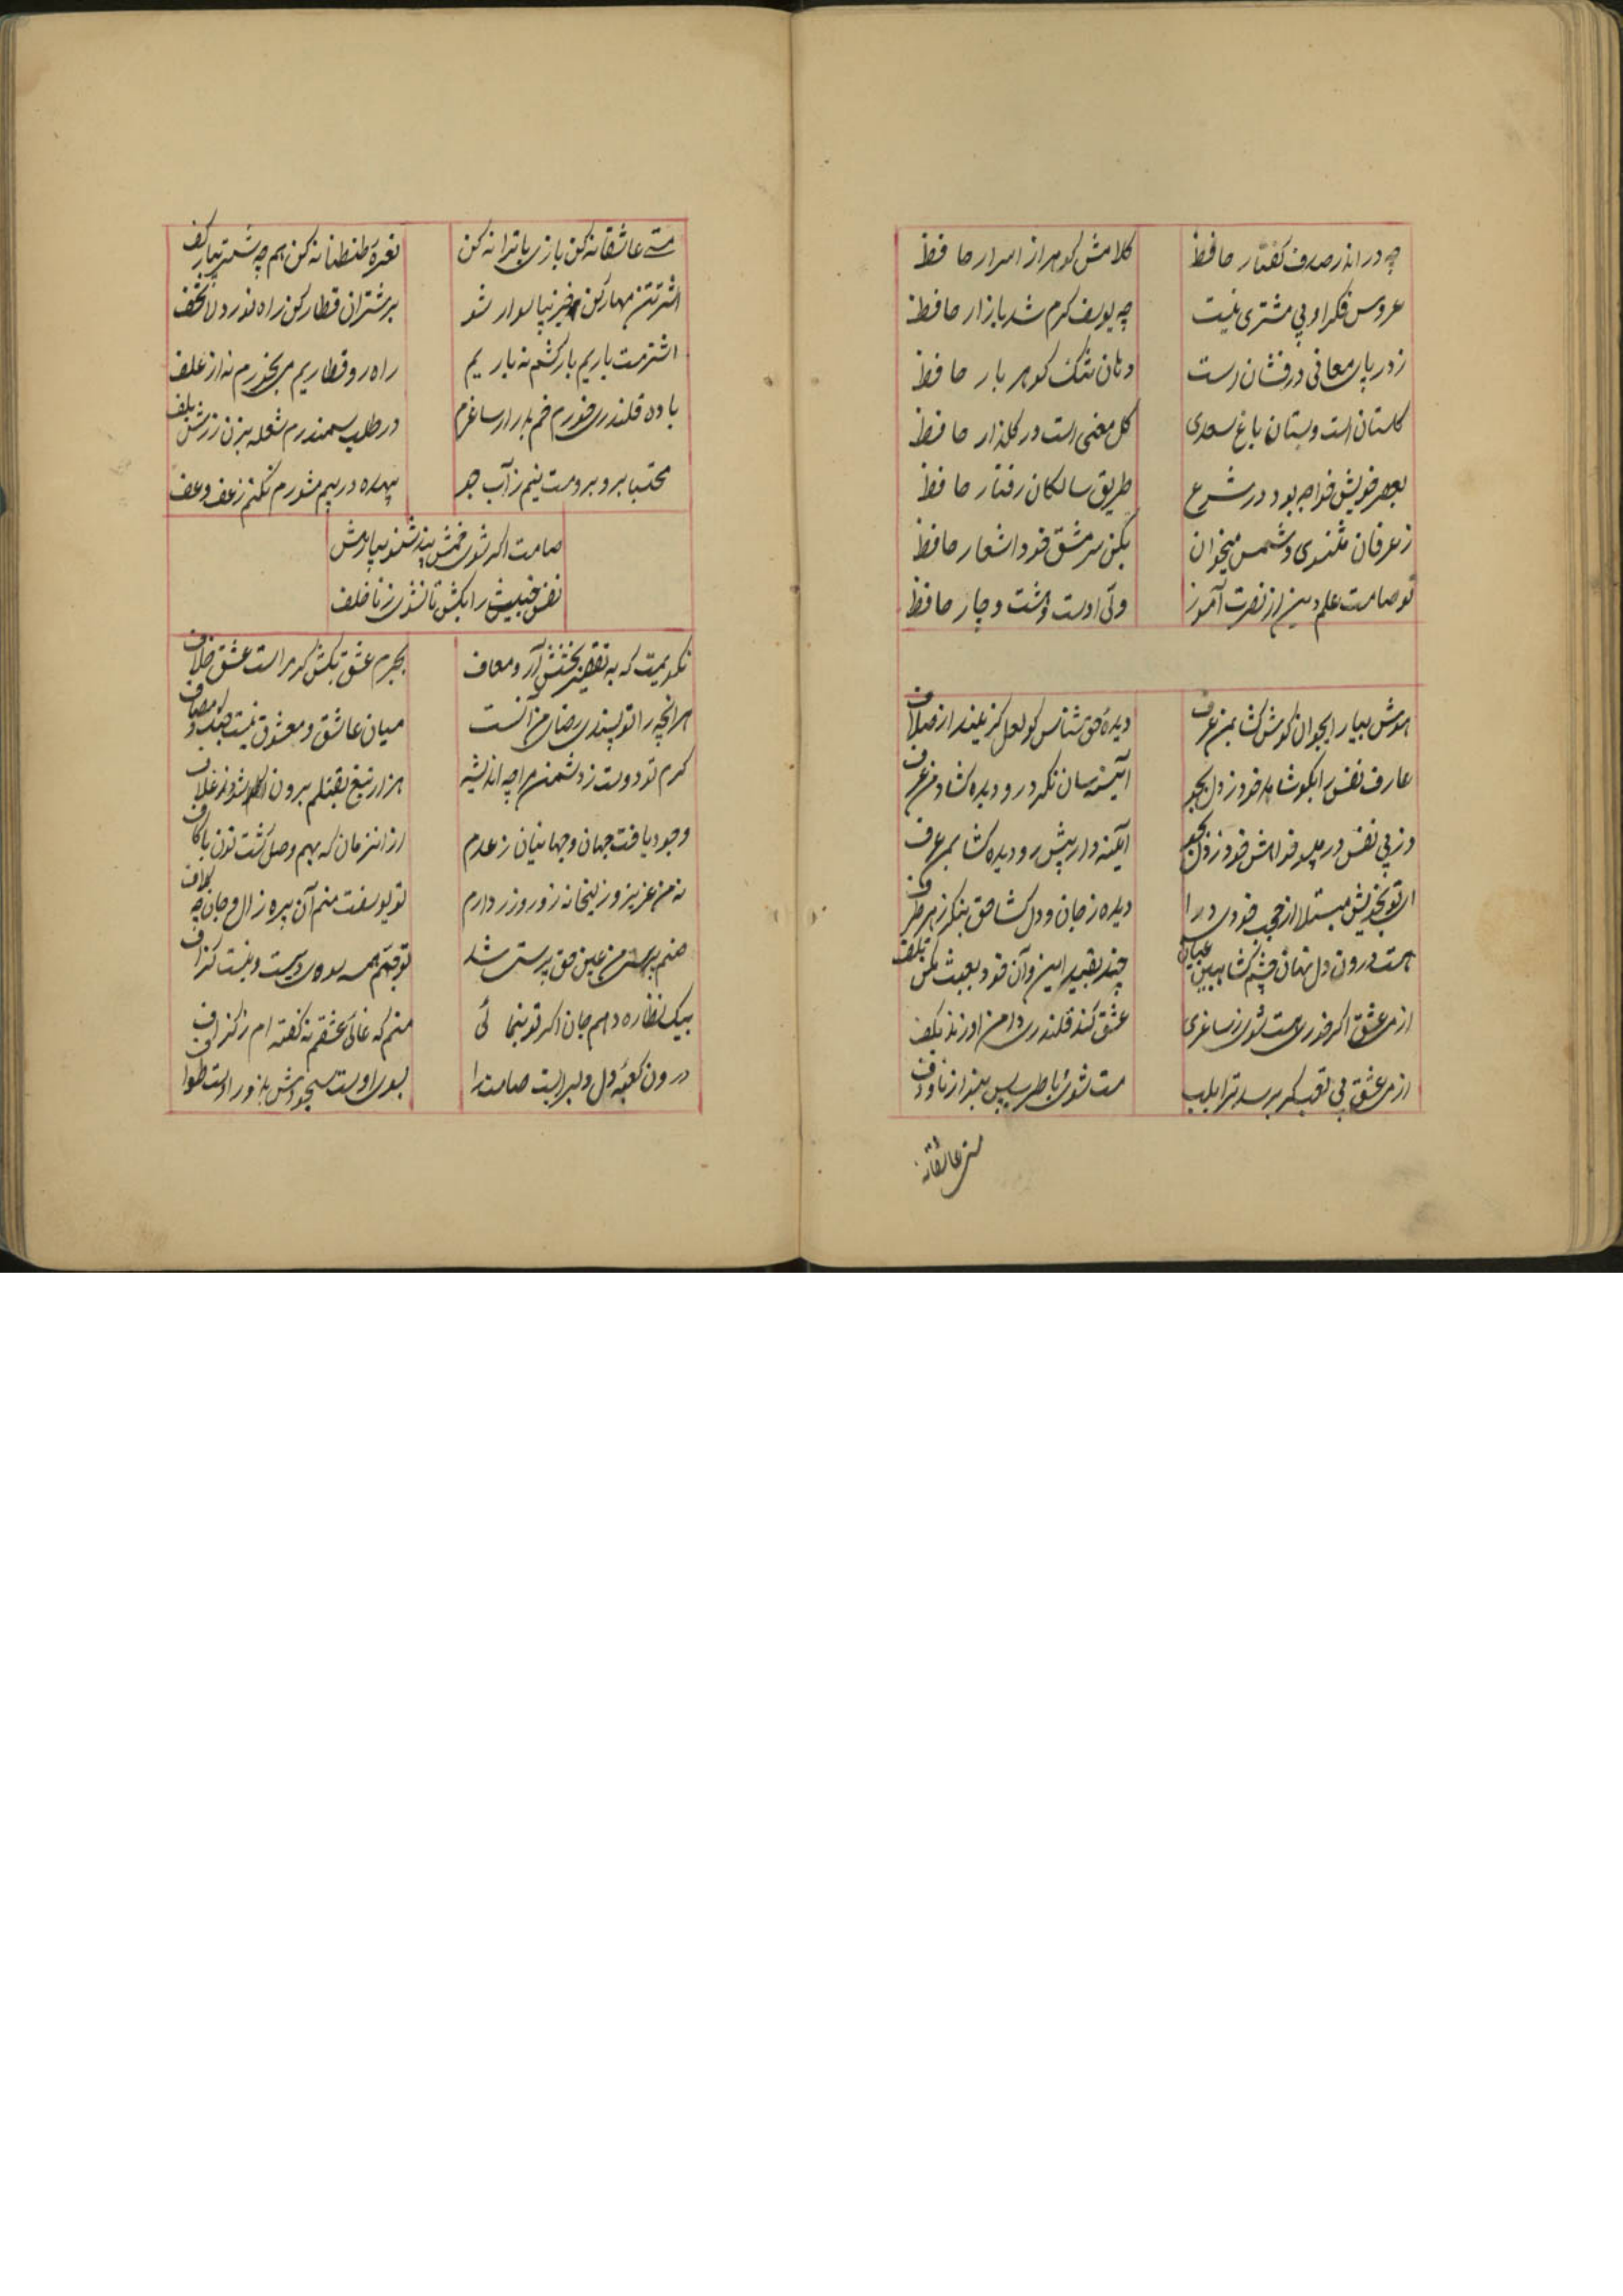 چه در اندر صدف گفتار حافظ
کلامش گوهر از اسرار حافظ
عروس فکر او بی مشتری نیست
چه یوسف گرم شد بازار حافظ
ز دریای معانی درفشان است
دهان تنگ گوهر بار حافظ
گلستان است و بستان باغ سعدی
گل معنی است در گلزار حافظ
بعصر خویش خواجه بود در شرع
طریق سالکان رفتار حافظ
ز عرفان مثنوی و شمس میخوان
بکن سرمشق خود اشعار حافظ
تو صامت علم دین از نصرت آموز
ولی اوست وهشت و چار حافظ
هوش بیار ایجوان گوش گشا بمن عرف
دیده حق شناس کو لعل گزیند از صدف
عارف نفس را بگو شاهد خود ز دل بجو
آینه سان نگر درو دیده گشا و من عرف
وز پی نفس در مرو خواهش خود ز دل بجو
آینه وار پیش رو دیده گشا بمن عرف
ای تو بخویش مبتلا از حجب خودی درا
دیده ز جان و دل گشا حق بنگر ز هر طرف
هست درون دل نهان چشم گشا ببین عیان
چند بقید این و آن خود بعبث مکن تلف
از می عشق اگر خوری مست شوی ز ساغری
عشق کند قلندری دامن او زند بکف
از می عشق بی تعب گر برسد ترا بلب
مست شوی با طرب پس بیز از نا و دف
مستی عاشقانه

مستی عاشقانه کن بازی با ترانه کن
نعره طنطنانه کن هم چه شتر بیار کف
اشتر تن مهار کن خیز بیا سوار شو
بر شتران قطار کن راه نورد لاتخف
اشتر مست باریم بارکشم نه باریم
راه رو قطاریم می بخورم نه از علف
باده قلندری خورم خم بدار ساغرم
در طلب سمندرم شعله بزن زرش بلف
محتسبا برو برو مست نیم ز آب جو
بیهده در پیم مشو رم نکنم ز عف وعف
صامت اگر شوی خمش پند شنو بیا ز مش
نفس خبیث را بکش تا نشوی ز ناخلف
نگویمت که به تقصیر بخشش آر و معاف
بجرم عشق بکش گر مراست عشق خلاف
هرانچه را تو پسندی رضای من آنست
میان عاشق و معشوق نیست جنگ و مصاف
گرم تو دوست ز دشمن مرا چه اندیشه
هزار تیغ بقتلم برون شوند غلاف
وجود یافت جهان و جهانیان ز عدم
از انزمان که بهم وصل گشت نون با کاف
نه من عزیز و زلیخا نه زور و زر دارم
تو یوسفت منم آن پیره زال و جان چه کلاف
صنم پرستی من عین حق پرست شد
توجهم همه سوی ویست و نیست گزاف
بیک نظاره دهم جان اگر تو بنمائی
منم که غالی عشقم نه گفته ام ز گزاف
درون کعبه دل دلبر است صامت را
بسوی اوست سجودش بدور اوست طواف